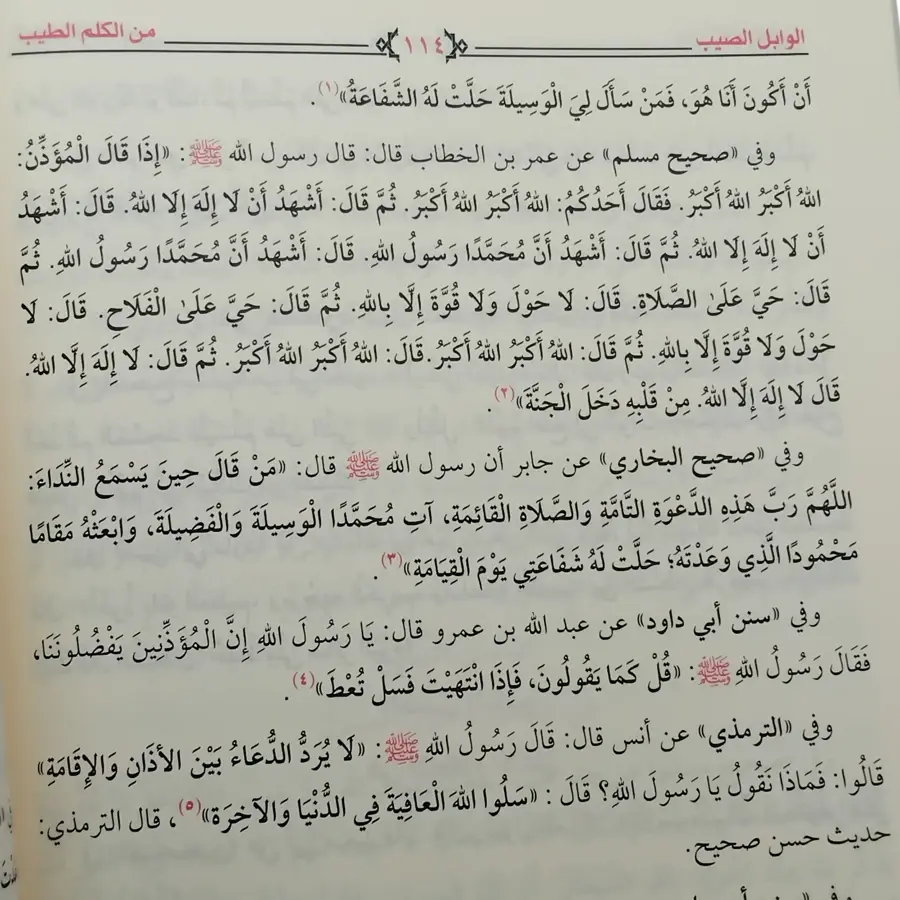 الوابل الصيب ١١٤ من الكلم الطيب
أَنْ أَكُونَ أَنَا هُوَ، فَمَنْ سَأَلَ لِيَ الْوَسِيلَةَ حَلَّتْ لَهُ الشَّفَاعَةُ»(١).
وفي «صحيح مسلم» عن عمر بن الخطاب قال: قال رسول الله ﷺ: «إِذَا قَالَ الْمُؤَذِّنُ:
اللهُ أَكْبَرُ اللهُ أَكْبَرُ. فَقَالَ أَحَدُكُمُ: اللهُ أَكْبَرُ اللهُ أَكْبَرُ. ثُمَّ قَالَ: أَشْهَدُ أَنْ لَا إِلَهَ إِلَّا اللهُ. قَالَ: أَشْهَدُ
أَنْ لَا إِلَهَ إِلَّا اللهُ. ثُمَّ قَالَ: أَشْهَدُ أَنَّ مُحَمَّدًا رَسُولُ اللهِ. قَالَ: أَشْهَدُ أَنَّ مُحَمَّدًا رَسُولُ اللهِ. ثُمَّ
قَالَ: حَيَّ عَلَى الصَّلَاةِ. قَالَ: لَا حَوْلَ وَلَا قُوَّةَ إِلَّا بِاللهِ. ثُمَّ قَالَ: حَيَّ عَلَى الْفَلَاحِ. قَالَ: لَا
حَوْلَ وَلَا قُوَّةَ إِلَّا بِاللهِ. ثُمَّ قَالَ: اللهُ أَكْبَرُ اللهُ أَكْبَرُ. قَالَ: اللهُ أَكْبَرُ اللهُ أَكْبَرُ. ثُمَّ قَالَ: لَا إِلَهَ إِلَّا اللهُ.
قَالَ لَا إِلَهَ إِلَّا اللهُ. مِنْ قَلْبِهِ دَخَلَ الْجَنَّةَ»(٢).
وفي «صحيح البخاري» عن جابر أن رسول الله ﷺ قال: «مَنْ قَالَ حِينَ يَسْمَعُ النِّدَاءَ:
اللَّهُمَّ رَبَّ هَذِهِ الدَّعْوَةِ التَّامَّةِ وَالصَّلَاةِ الْقَائِمَةِ، آتِ مُحَمَّدًا الْوَسِيلَةَ وَالْفَضِيلَةَ، وَابْعَثْهُ مَقَامًا
مَحْمُودًا الَّذِي وَعَدْتَهُ؛ حَلَّتْ لَهُ شَفَاعَتِي يَوْمَ الْقِيَامَةِ»(٣).
وفي «سنن أبي داود» عن عبد الله بن عمرو قال: يَا رَسُولَ اللهِ إِنَّ الْمُؤَذِّنِينَ يَفْضُلُونَنَا،
فَقَالَ رَسُولُ اللهِ ﷺ: «قُلْ كَمَا يَقُولُونَ، فَإِذَا انْتَهَيْتَ فَسَلْ تُعْطَ»(٤).
وفي «الترمذي» عن أنس قال: قَالَ رَسُولُ اللهِ ﷺ: «لَا يُرَدُّ الدُّعَاءُ بَيْنَ الأَذَانِ وَالإِقَامَةِ»
قَالُوا: فَمَاذَا نَقُولُ يَا رَسُولَ اللهِ؟ قَالَ: «سَلُوا اللهَ الْعَافِيَةَ فِي الدُّنْيَا وَالْآخِرَةِ»(٥)، قال الترمذي:
حديث حسن صحيح.